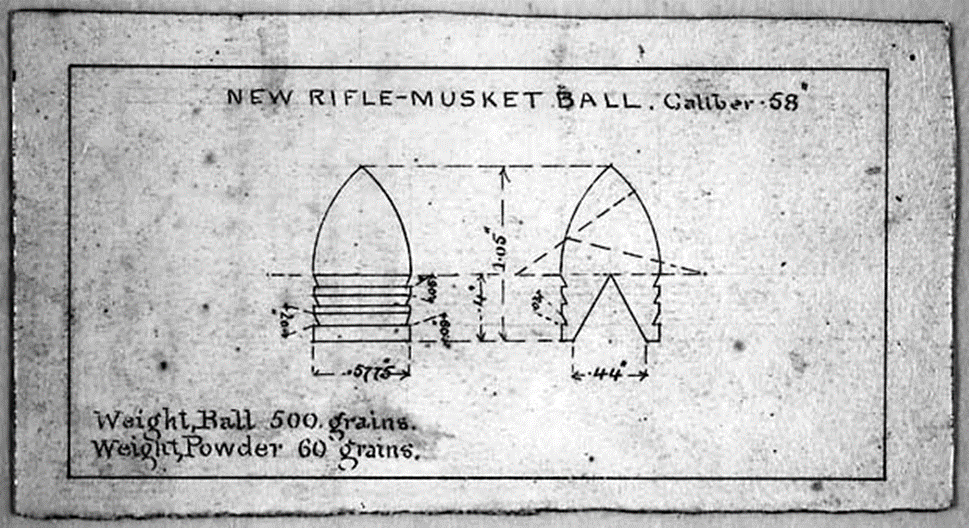 NEW RIFLE-MUSKET BALL. Caliber .58"
1.05"
.4"
.5775"
.44"
Weight, Ball 500. grains.
Weight, Powder 60 grains.